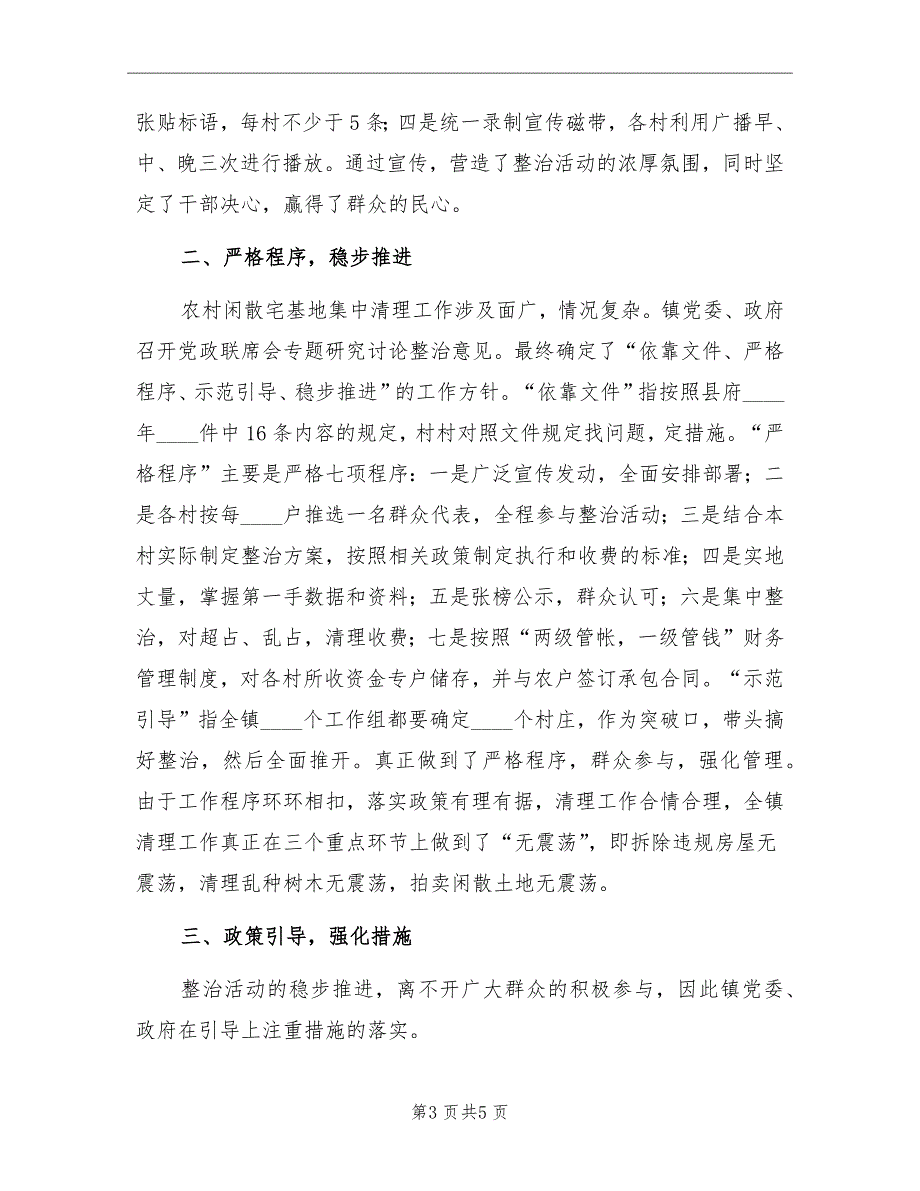 张贴标语，每村不少于 5 条；四是统一录制宣传磁带，各村利用广播早、
中、晚三次进行播放。通过宣传，营造了整治活动的浓厚氛围，同时坚
定了干部决心，赢得了群众的民心。
二、严格程序，稳步推进
农村闲散宅基地集中清理工作涉及面广，情况复杂。镇党委、政府
召开党政联席会专题研究讨论整治意见。最终确定了“依靠文件、严格
程序、示范引导、稳步推进”的工作方针。“依靠文件”指按照县府____
年____件中 16 条内容的规定，村村对照文件规定找问题，定措施。“严
格程序”主要是严格七项程序：一是广泛宣传发动，全面安排部署；二
是各村按每____户推选一名群众代表，全程参与整治活动；三是结合本
村实际制定整治方案，按照相关政策制定执行和收费的标准；四是实地
丈量，掌握第一手数据和资料；五是张榜公示，群众认可；六是集中整
治，对超占、乱占，清理收费；七是按照“两级管帐，一级管钱”财务
管理制度，对各村所收资金专户储存，并与农户签订承包合同。“示范
引导”指全镇____个工作组都要确定____个村庄，作为突破口，带头搞
好整治，然后全面推开。真正做到了严格程序，群众参与，强化管理。
由于工作程序环环相扣，落实政策有理有据，清理工作合情合理，全镇
清理工作真正在三个重点环节上做到了“无震荡”，即拆除违规房屋无
震荡，清理乱种树木无震荡，拍卖闲散土地无震荡。
三、政策引导，强化措施
整治活动的稳步推进，离不开广大群众的积极参与，因此镇党委、
政府在引导上注重措施的落实。
第3 页共5 页